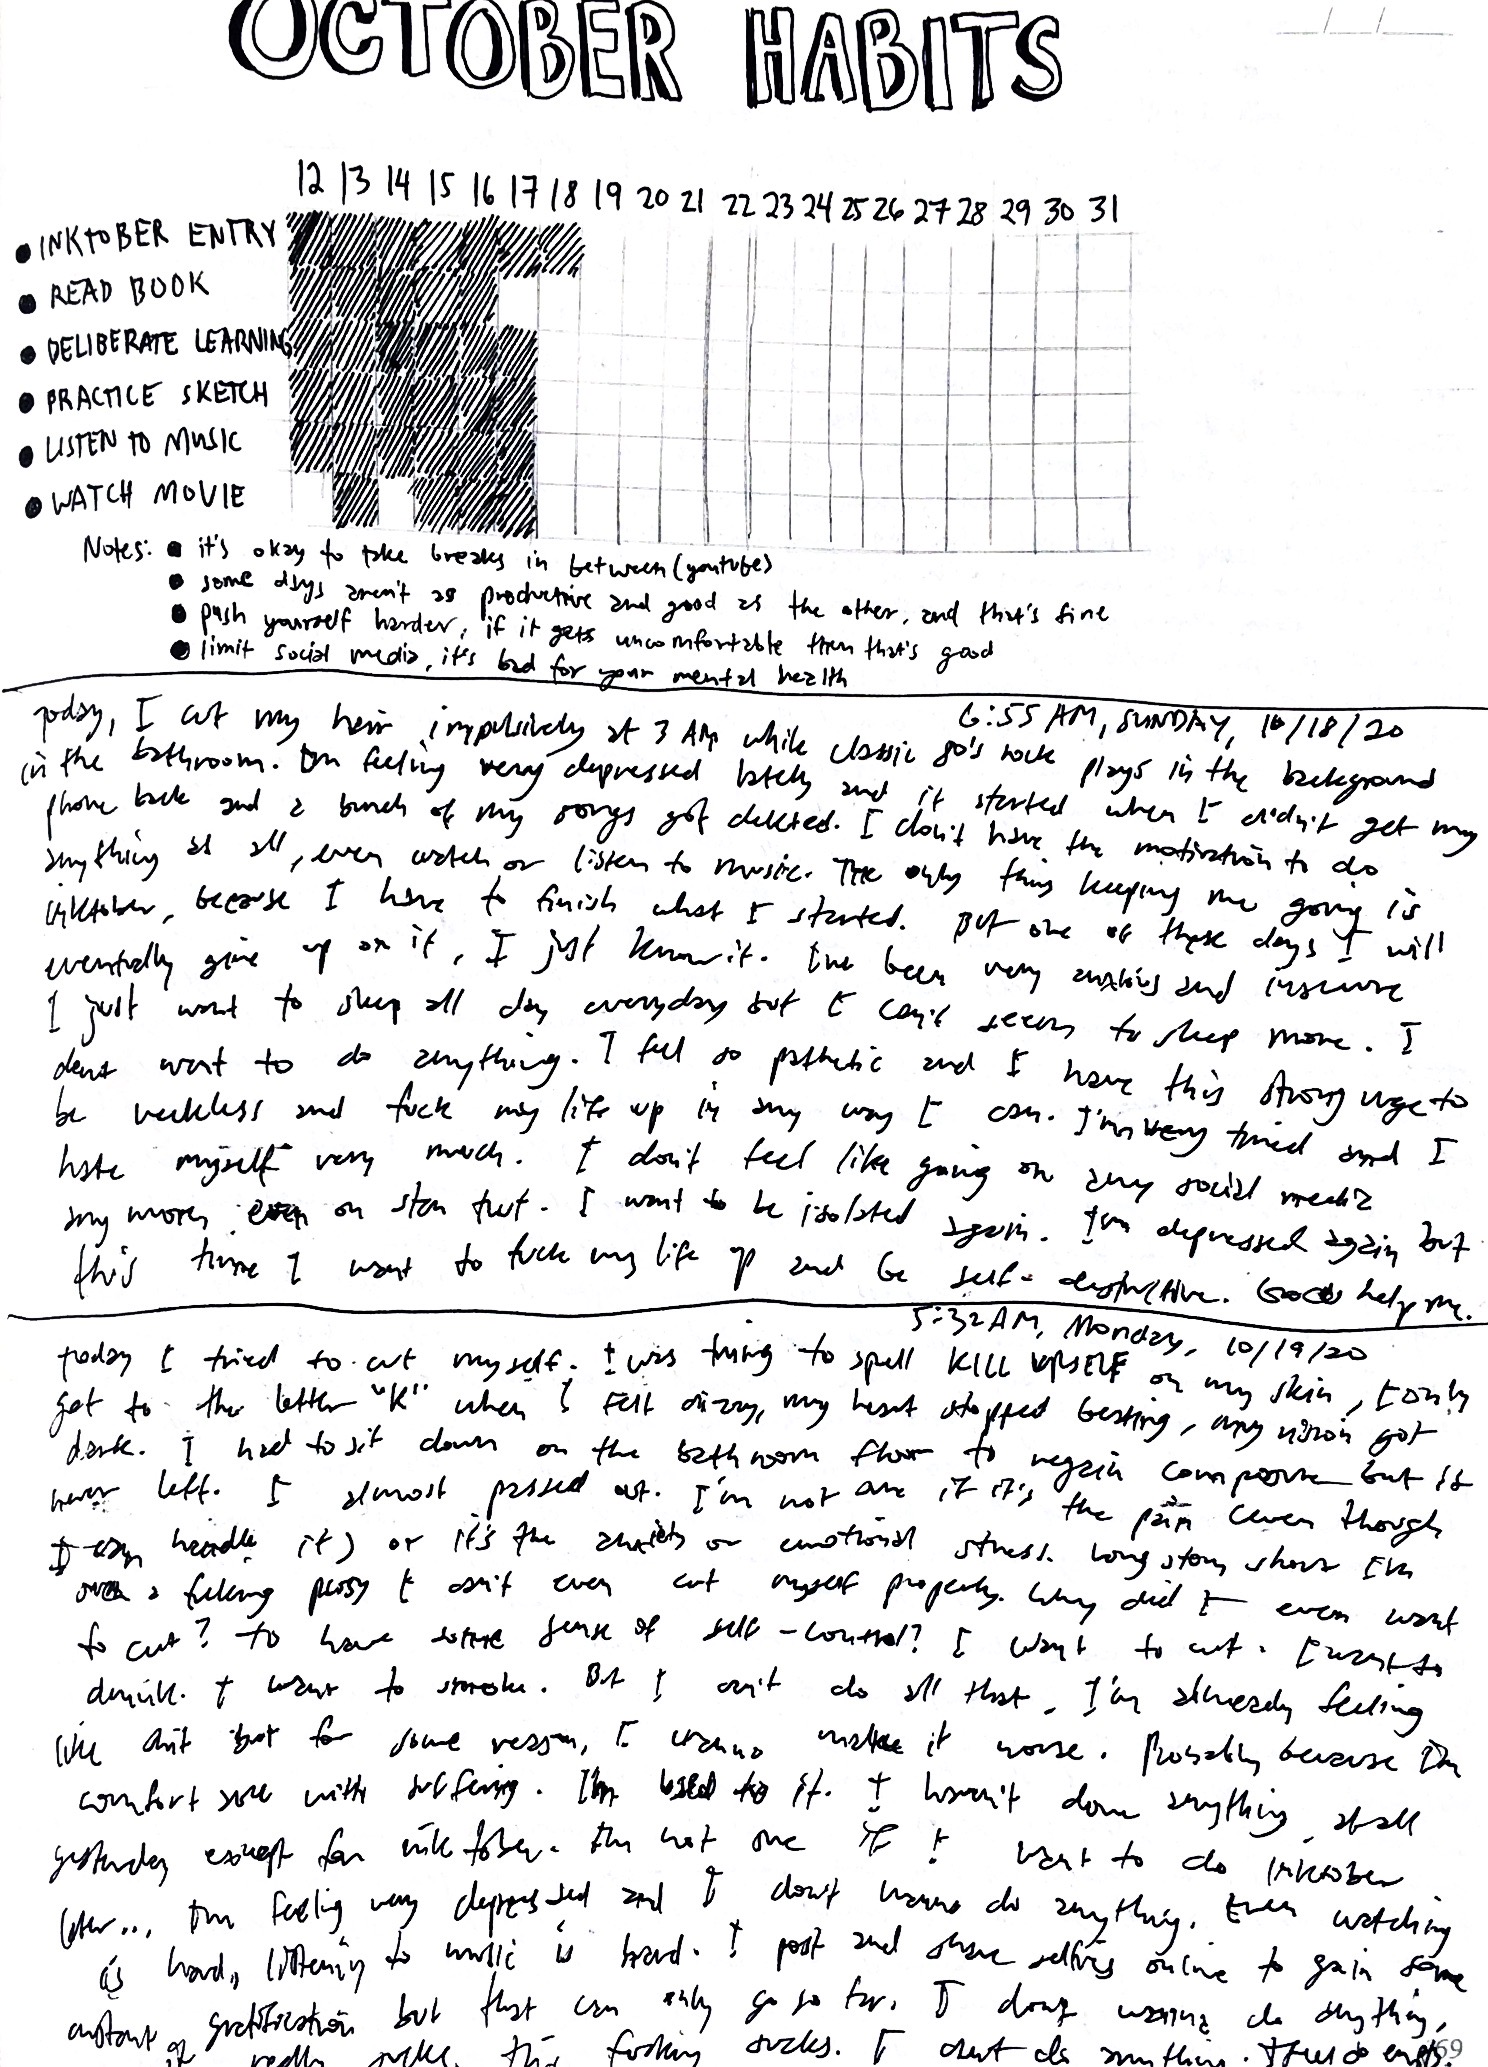 OCTOBER HABITS
12 13 14 15 16 17 18 19 20 21 22 23 24 25 26 27 28 29 30 31
INKTOBER ENTRY
READ BOOK
DELIBERATE LEARNING
PRACTICE SKETCH
LISTEN TO MUSIC
WATCH MOVIE
Notes: • it's okay to take breaks in between (youtube)
• some days aren't as productive and good as the other, and that's fine
• push yourself harder, if it gets uncomfortable then that's good
• limit social media, it's bad for your mental health
6:55 AM, SUNDAY, 10/18/20
Today, I cut my hair impulsively at 3 AM while classic 80's rock plays in the background
in the bathroom. I'm feeling very depressed lately and it started when I didn't get my
phone back and a bunch of my songs got deleted. I don't have the motivation to do
anything at all, even watch or listen to music. The only thing keeping me going is
inktober, because I have to finish what I started. But one of these days I will
eventually give up on it, I just know it. I've been very anxious and insecure
I just want to sleep all day everyday but I can't seem to sleep more. I
dont want to do anything. I feel so pathetic and I have this strong urge to
be reckless and fuck my life up in any way I can. I'm very tired and I
hate myself very much. I don't feel like going on any social media
anymore, even on stan twt. I want to be isolated again. I'm depressed again but
this time I want to fuck my life up and be self-destructive. God help me.
5:32 AM, Monday, 10/19/20
Today I tried to cut myself. I was trying to spell KILL URSELF on my skin, I only
got to the letter "K" when I felt dizzy, my heart stopped beating, my vision got
dark. I had to sit down on the bathroom floor to regain composure but it
never left. I almost passed out. I'm not sure if it's the pain (even though
I can handle it) or it's the anxiety or emotional stress. Long story short I'm
such a fucking pussy I can't even cut myself properly. Why did I even want
to cut? To have some sense of self-control? I want to cut. I want to
drink. I want to smoke. But I can't do all that, I'm already feeling
like shit but for some reason, I wanna make it worse. Probably because I'm
comfortable with suffering. I'm used to it. I haven't done anything at all
yesterday except for inktober. I'm not sure if I want to do inktober
later... I'm feeling very depressed and I don't wanna do anything. Even watching
is hard, listening to music is hard. I post and share selfies online to gain some
instant gratification but that can only go so far. I don't wanna do anything,
it really sucks, this fucking sucks. I dont do anything.
69